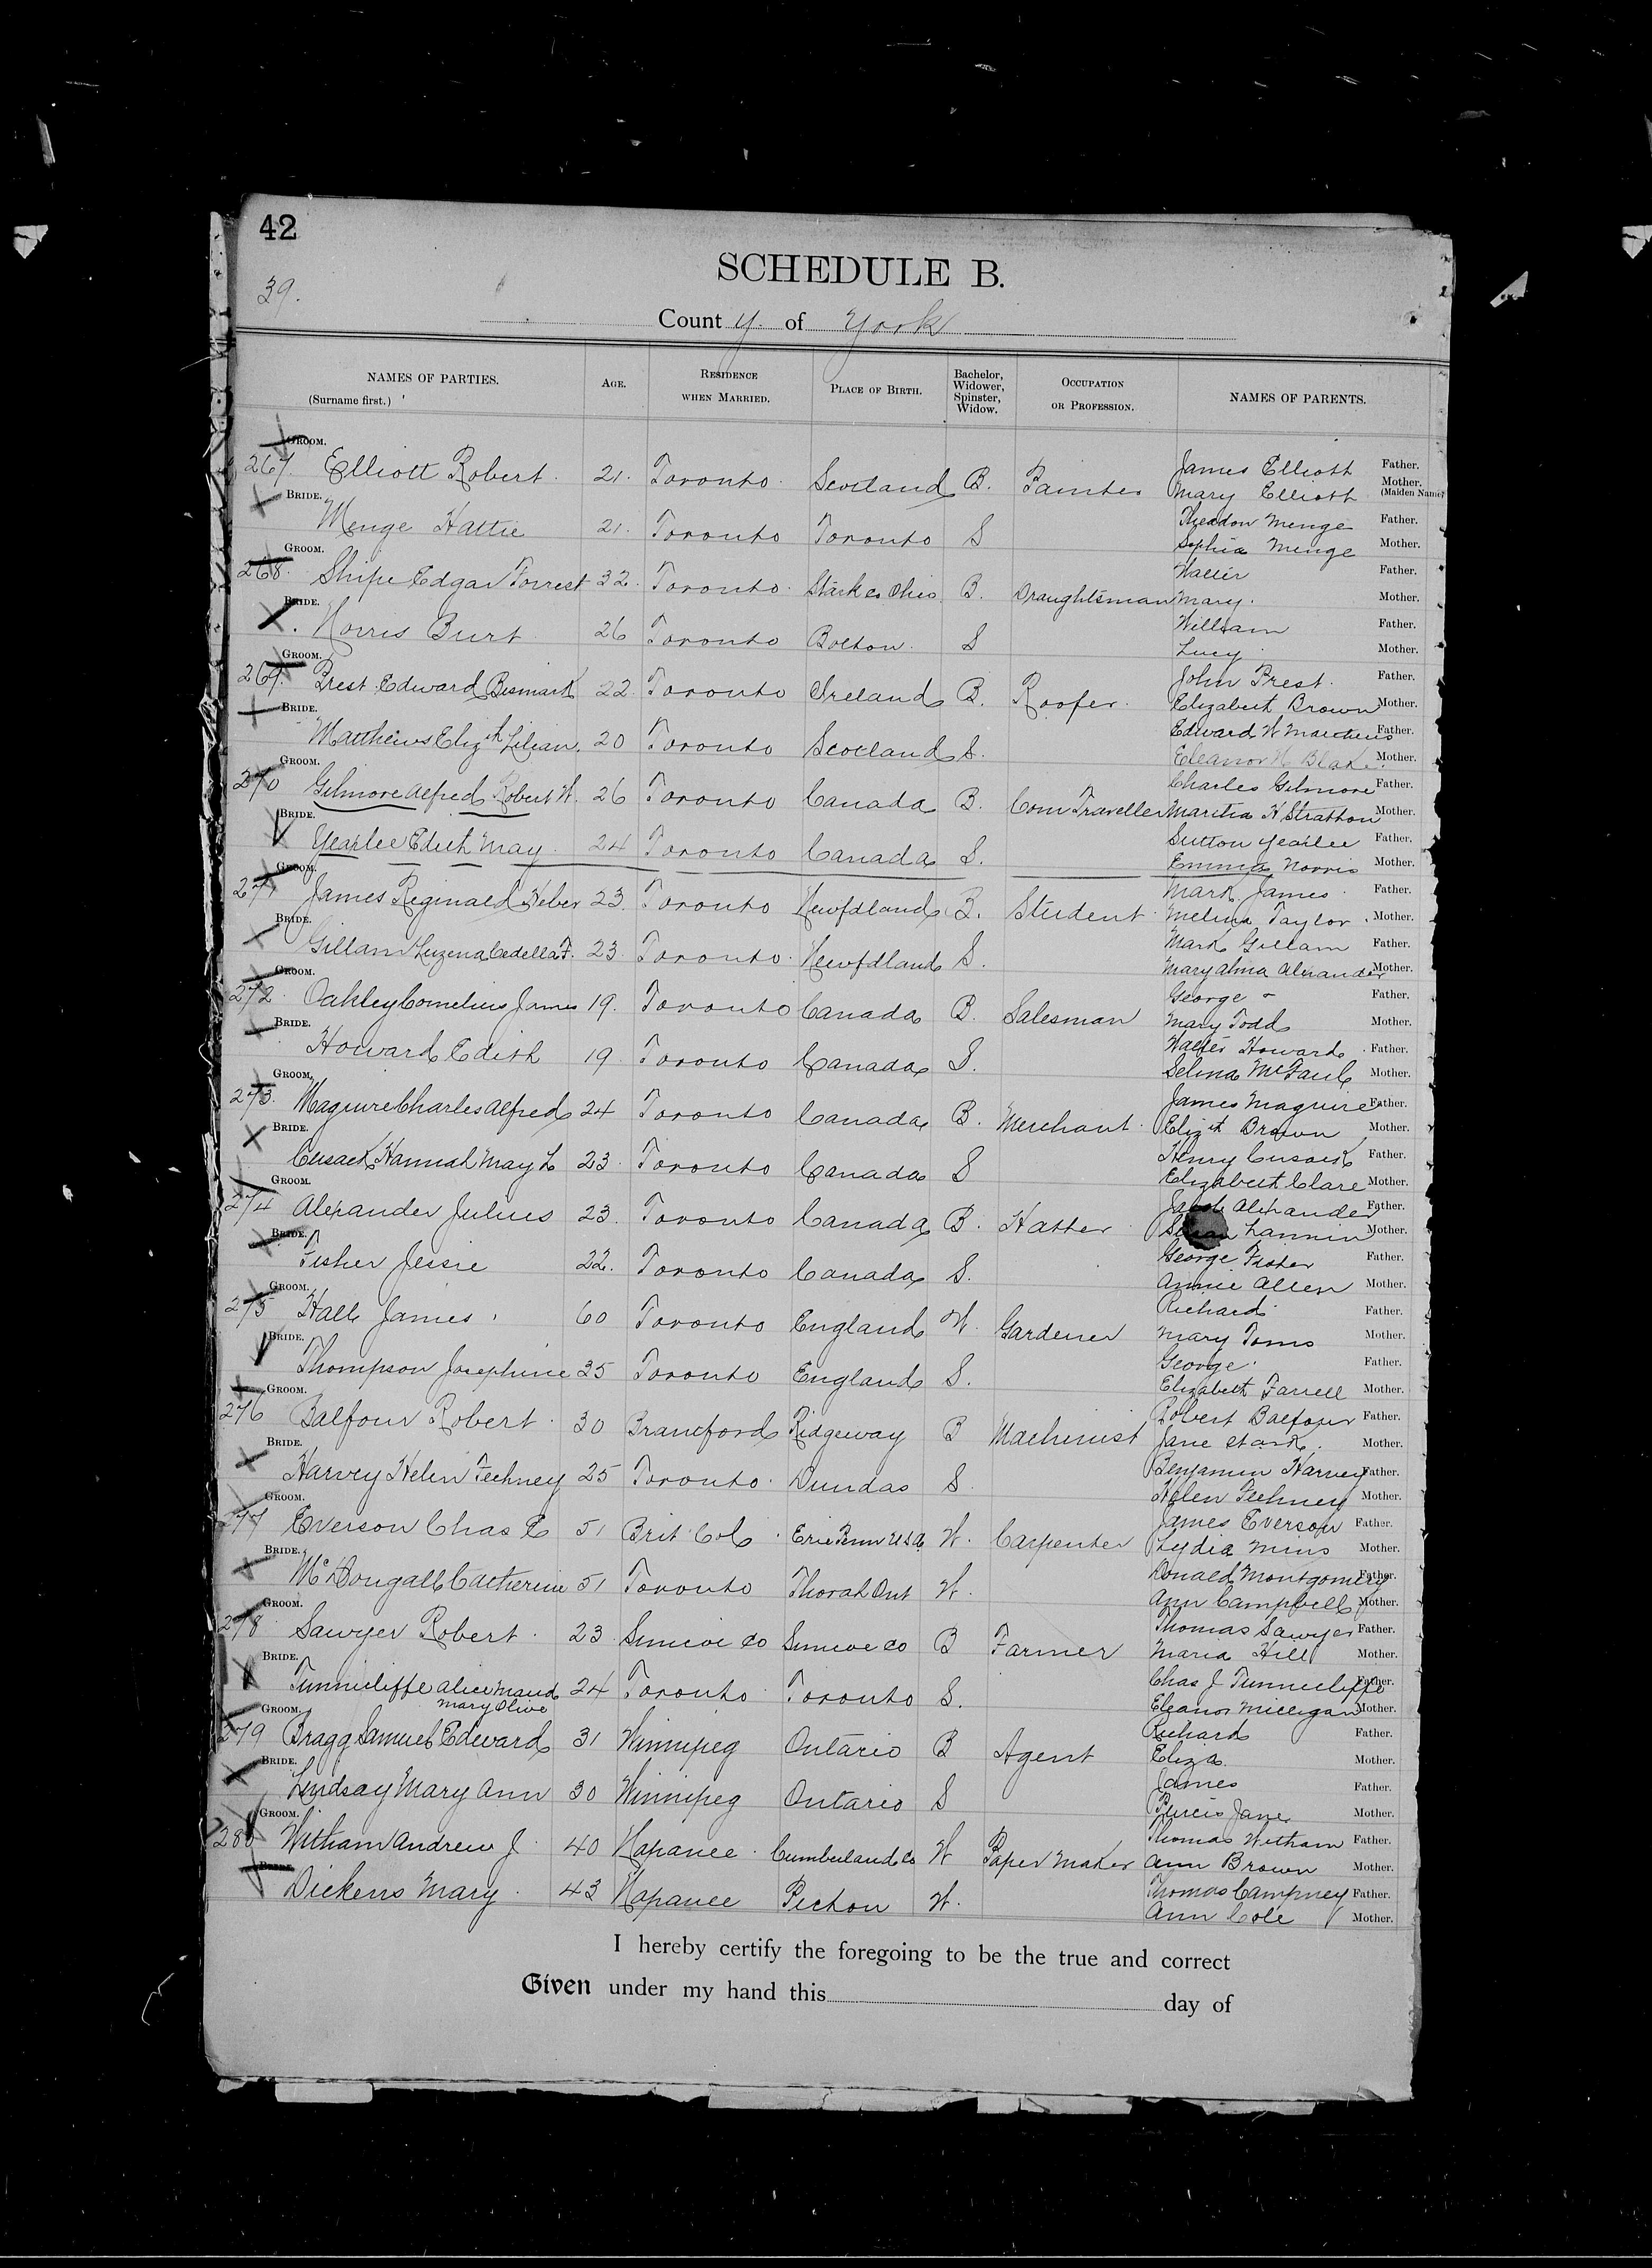 42
SCHEDULE B.
39.
County. of York
NAMES OF PARTIES.
(Surname first.)
AGE.
RESIDENCE
WHEN MARRIED.
PLACE OF BIRTH.
Bachelor,
Widower,
Spinster,
Widow.
OCCUPATION
OR PROFESSION.
NAMES OF PARENTS.
GROOM.
267. Elliott Robert. 21. Toronto. Scotland B. Painter James Elliott Father.
Mary Elliott Mother. (Maiden Name)
BRIDE.
Menge Hattie 21. Toronto Toronto S Menge Father.
Sophia Menge Mother.
GROOM.
268. Shipe Edgar Forrest 32. Toronto. Stark Co Ohio. B. Draughtsman Walter Father.
Mary. Mother.
BRIDE.
Norris Burt 26 Toronto Bolton. S William Father.
Lucy. Mother.
GROOM.
269. Prest Edward Bismark 22 Toronto Ireland B. Roofer. John Prest. Father.
Elizabeth Brown Mother.
BRIDE.
Matthews Elizth Lilian. 20 Toronto Scotland S. Edward W Matthews Father.
Eleanor H Blake. Mother.
GROOM.
270 Gilmore Alfred Robert W. 26 Toronto Canada B. Com Traveller Charles Gilmore Father.
Maritia H Stratton Mother.
BRIDE.
Yearlee Edith May. 24 Toronto Canada S. Sutton Yearlee Father.
Emma Norris Mother.
GROOM.
271 James Reginald Heber 23. Toronto Newfdland B. Student Mark James Father.
Melina Taylor. Mother.
BRIDE.
Gillam Luzena Cedella F. 23. Toronto. Newfdland S. Mark Gillam Father.
Mary Alma Alexander Mother.
GROOM.
272. Oakley Cornelius James 19. Toronto Canada B. Salesman George Father.
Mary Todd Mother.
BRIDE.
Howard Edith 19. Toronto Canada S. Walter Howard. Father.
Selina McFaul Mother.
GROOM.
273. Maguire Charles Alfred 24 Toronto Canada B. Merchant. James Maguire Father.
Elizth Brown Mother.
BRIDE.
Cusack Hannah May L 23. Toronto Canada S Henry Cusack Father.
Elizabeth Clare Mother.
GROOM.
274 Alexander Julius 23. Toronto Canada B. Hatter Jacob Alexander Father.
Lannin Mother.
BRIDE.
Fisher Jessie 22. Toronto Canada S. George Fisher Father.
Annie Allen Mother.
GROOM.
275 Hall James. 60 Toronto England W. Gardener Richard. Father.
Mary Toms Mother.
BRIDE.
Thompson Josephine 35 Toronto England S. George. Father.
Elizabeth Farrell Mother.
GROOM.
276 Balfour Robert. 30 Brantford Ridgeway B Machinist Robert Balfour Father.
Jane Stark. Mother.
BRIDE.
Harvey Helen Techney 25 Toronto. Dundas S Benjamin Harvey Father.
Helen Techney Mother.
GROOM.
277 Everson Chas E 51 Brit Col. Erie Penn USA. W. Carpenter James Everson Father.
Lydia Mins Mother.
BRIDE.
McDougall Catherine 51 Toronto Thorah Ont W. Donald Montgomery Father.
Ann Campbell Mother.
GROOM.
278. Sawyer Robert. 23 Simcoe Co Simcoe Co B Farmer Thomas Sawyer Father.
Maria Hill Mother.
BRIDE.
Tunnicliffe Alice Maud 24 Toronto Toronto S. Chas J Tunnicliffe Father.
Mary Olive Eleanor Milligan Mother.
GROOM.
279 Bragg Samuel Edward 31 Winnipeg Ontario B Agent Richard Father.
Eliza. Mother.
BRIDE.
Lindsay Mary Ann 30 Winnipeg Ontario S James Father.
Jane Mother.
GROOM.
280 Witham Andrew J. 40 Napanee. Cumberland Co W Paper Maker Thomas Witham Father.
Ann Brown Mother.
BRIDE.
Dickens Mary. 43 Napanee Picton W. Thomas Campney Father.
Ann Cole Mother.
I hereby certify the foregoing to be the true and correct
Given under my hand this day of